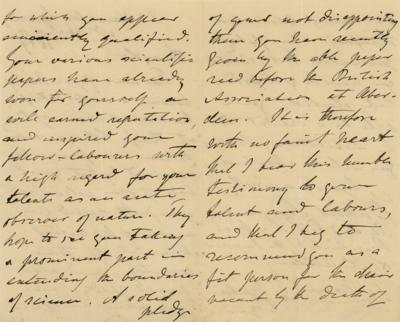 for which you appear
eminently qualified.
Your various scientific
papers have already
won for yourself a
well earned reputation,
and inspired your
fellow-labourers with
a high regard for your
talents as an acute
observer of nature. They
hope to see you taking
a prominent part in
extending the boundaries
of science. A solid
pledge
of your not disappointing
them you have recently
given by the able paper
read before the British
Association at Aber-
deen. It is therefore
with no faint heart
that I bear this humble
testimony to your
talent and labours,
and that I beg to
recommend you as a
fit person for the chair
vacant by the death of